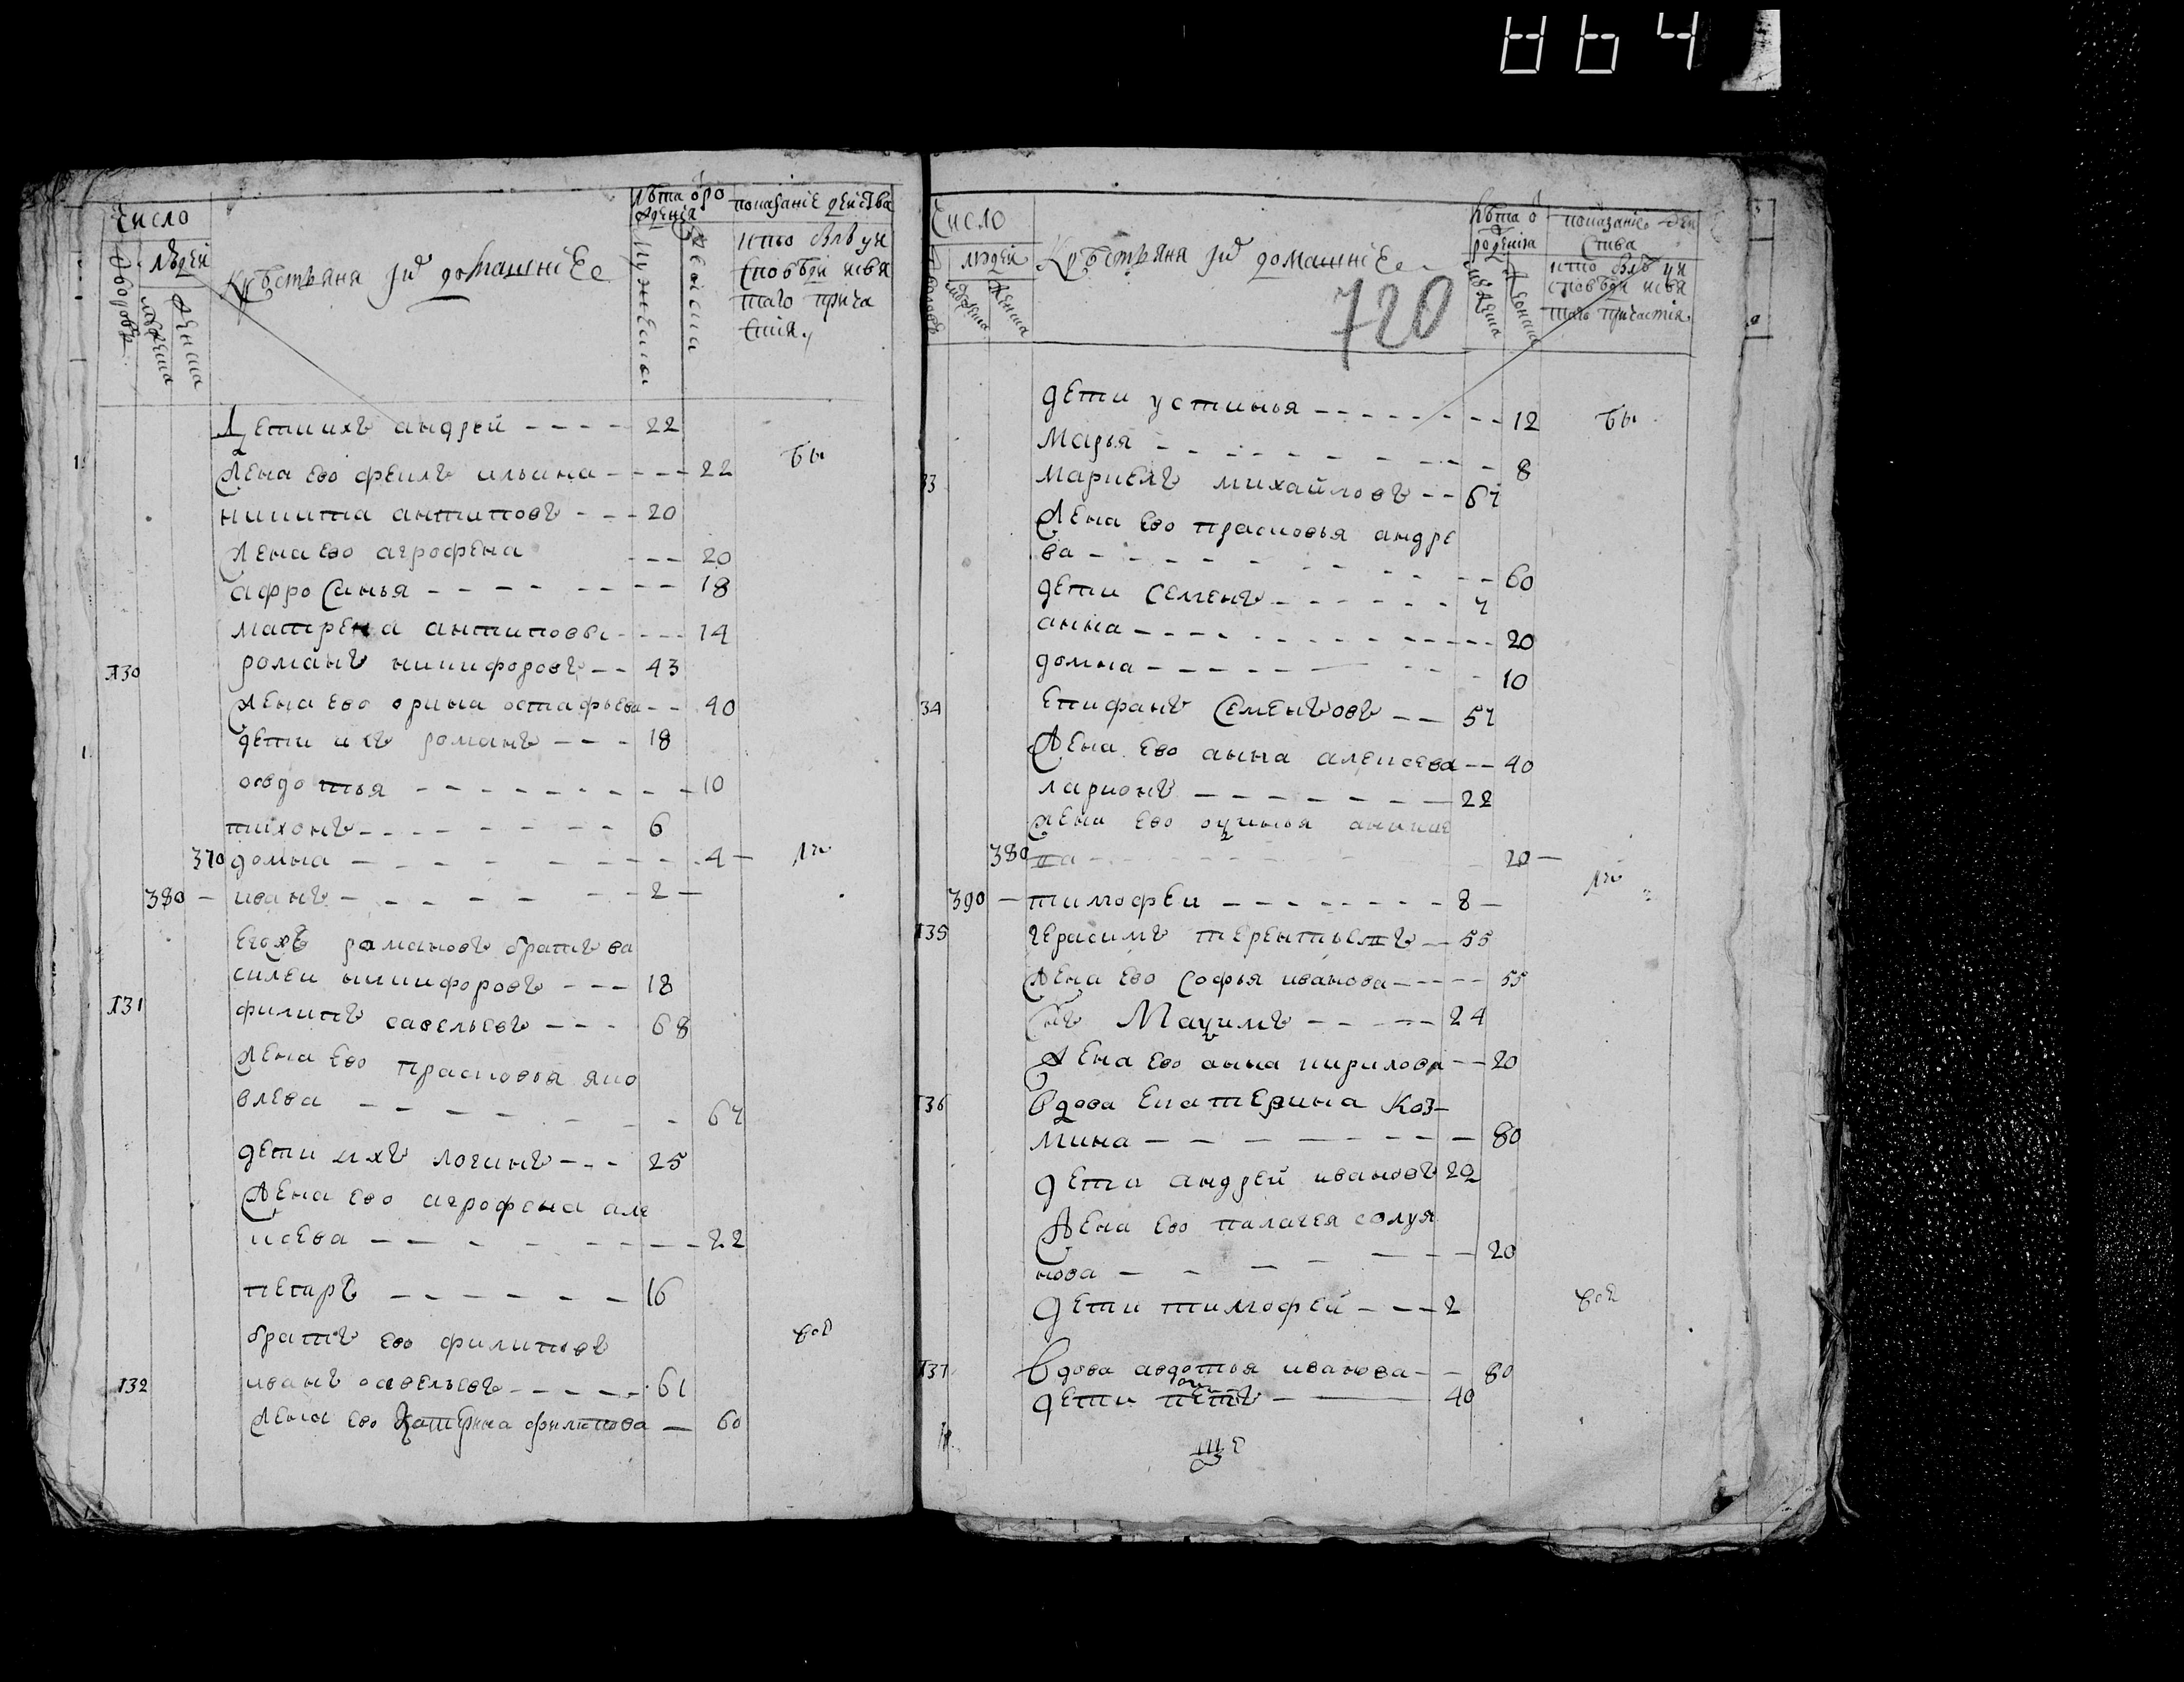 864
Число
людей
дворовъ
мужеска
женска
Крѣстьяня ихъ домашнiе
лѣта о ро
жденiя
Мужеска
женска
показанiе действа
кто былъ у и
споведи и свя
таго прича
стия
Дети ихъ андрей - - - - 22
бы
жена ево феклъ ильина - - - - 22
никита антиповъ - - - 20
жена ево агрофена - - - 20
афросинья - - - - - - - - 18
матрена антиповы - - - - 14
130 романъ никифоровъ - - 43
жена ево орина остафьева - - 40
дети ихъ романъ - - - 18
овдотья - - - - - - - - - 10
тихонъ - - - - - - - - 6
370 домна - - - - - - - - - 4 —
380 — иванъ - - - - - - - 2 —
ево жъ романовъ братъ ва
силеи никифоровъ - - - 18
131 филипъ савельевъ - - - 68
жена ево прасковья яко
влева - - - - - - - 67
дети ихъ логинъ - - - 25
жена ево агрофена але
ксева - - - - - - - - 22
петръ - - - - - - 16
братъ ево филиповъ
132 иванъ савельевъ - - - - - 61
жена ево Катерина филипова — 60
Число
людей
дворовъ
женска
Крѣстьяня ихъ домашнiе
720
лѣта о
рождения
женска
показанiе дей
ства
кто былъ у и
споведи и свя
таго причастiя
дети устинья - - - - - - - - - 12
бы
Марья - - - - - - - - - 8
33 маркелъ михайловъ - - 67
жена ево прасковья андре
ва - - - - - - - - - - 60
дети Семенъ - - - - - - 7
анна - - - - - - - - - - - - 20
домна - - - - - - - - - 10
34 Епифанъ Семеновъ - - 57
жена ево анна алексева - - 40
ларионъ - - - - - - - 22
жена ево
380 - - - - - - 20 —
390 — тимофеи - - - - - - - - 8 —
135 герасимъ терентьевъ - 55
жена ево Софья иванова - - - - 55
снъ Маѯимъ - - - - - 24
жена ево анна кирилова - - 20
136 Вдова Екатерина Коз-
мина - - - - - - - - 80
дети андрей ивановъ 22
жена ево палагея солуя
нова - - - - - - 20
дети тимофей - - - 2
137 Вдова авдотья иванова - - 80
дети петръ - — 40